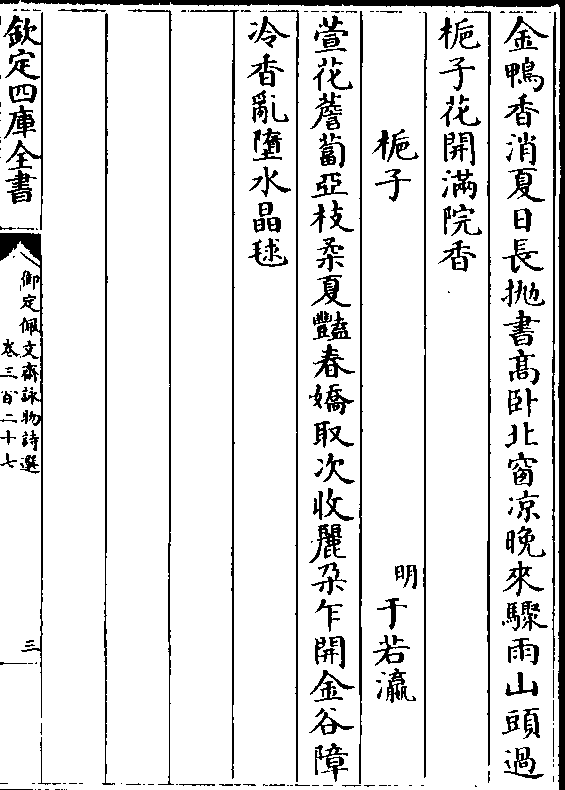 金鴨香消夏日長抛書髙卧北窗凉晚來驟雨山頭過
栀子花開滿院香
栀子
明于若瀛
萱花薝蔔亞枝柔夏豔春嬌取次收麗朶乍開金谷障
冷香亂墮水晶毬
欽定四庫全書
御定佩文齋詠物詩選
卷三百二十七
三